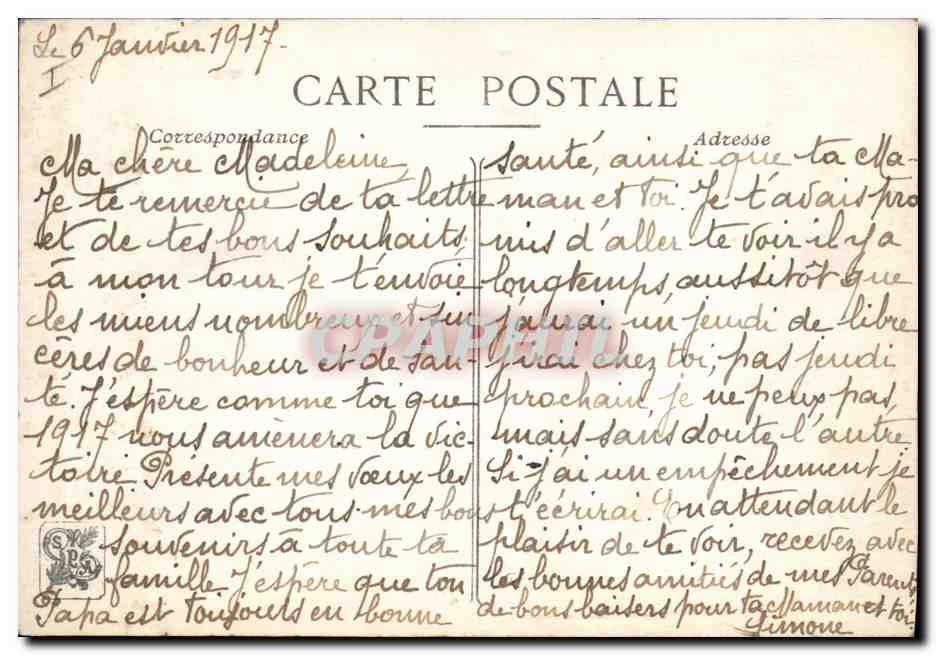 Le 6 Janvier 1917.
I
CARTE POSTALE
Correspondance
Adresse
Ma chère Madeleine,
Je te remercie de ta lettre
et de tes bons souhaits.
à mon tour je t'envoie
les miens nombreux et sin
cères de bonheur et de san-
té. J'éspère comme toi que
1917 nous amènera la vic-
toire. Présente mes vœux les
meilleurs avec tous mes bons
souvenirs à toute ta
famille J'éspère que ton
Papa est toujours en bonne
santé, ainsi que ta Ma-
man et toi. Je t'avais pro
mis d'aller te voir il y a
longtemps, aussitôt que
j'aurai un jeudi de libre
j'irai chez toi, pas jeudi
prochain, je ne peux pas,
mais sans doute l'autre
Si j'ai un empêchement je
t'écrirai. En attendant le
plaisir de te voir, recevez avec
les bonnes amitiés de mes Parents
de bons baisers pour ta Maman et toi.
Simone
CPAPHIL